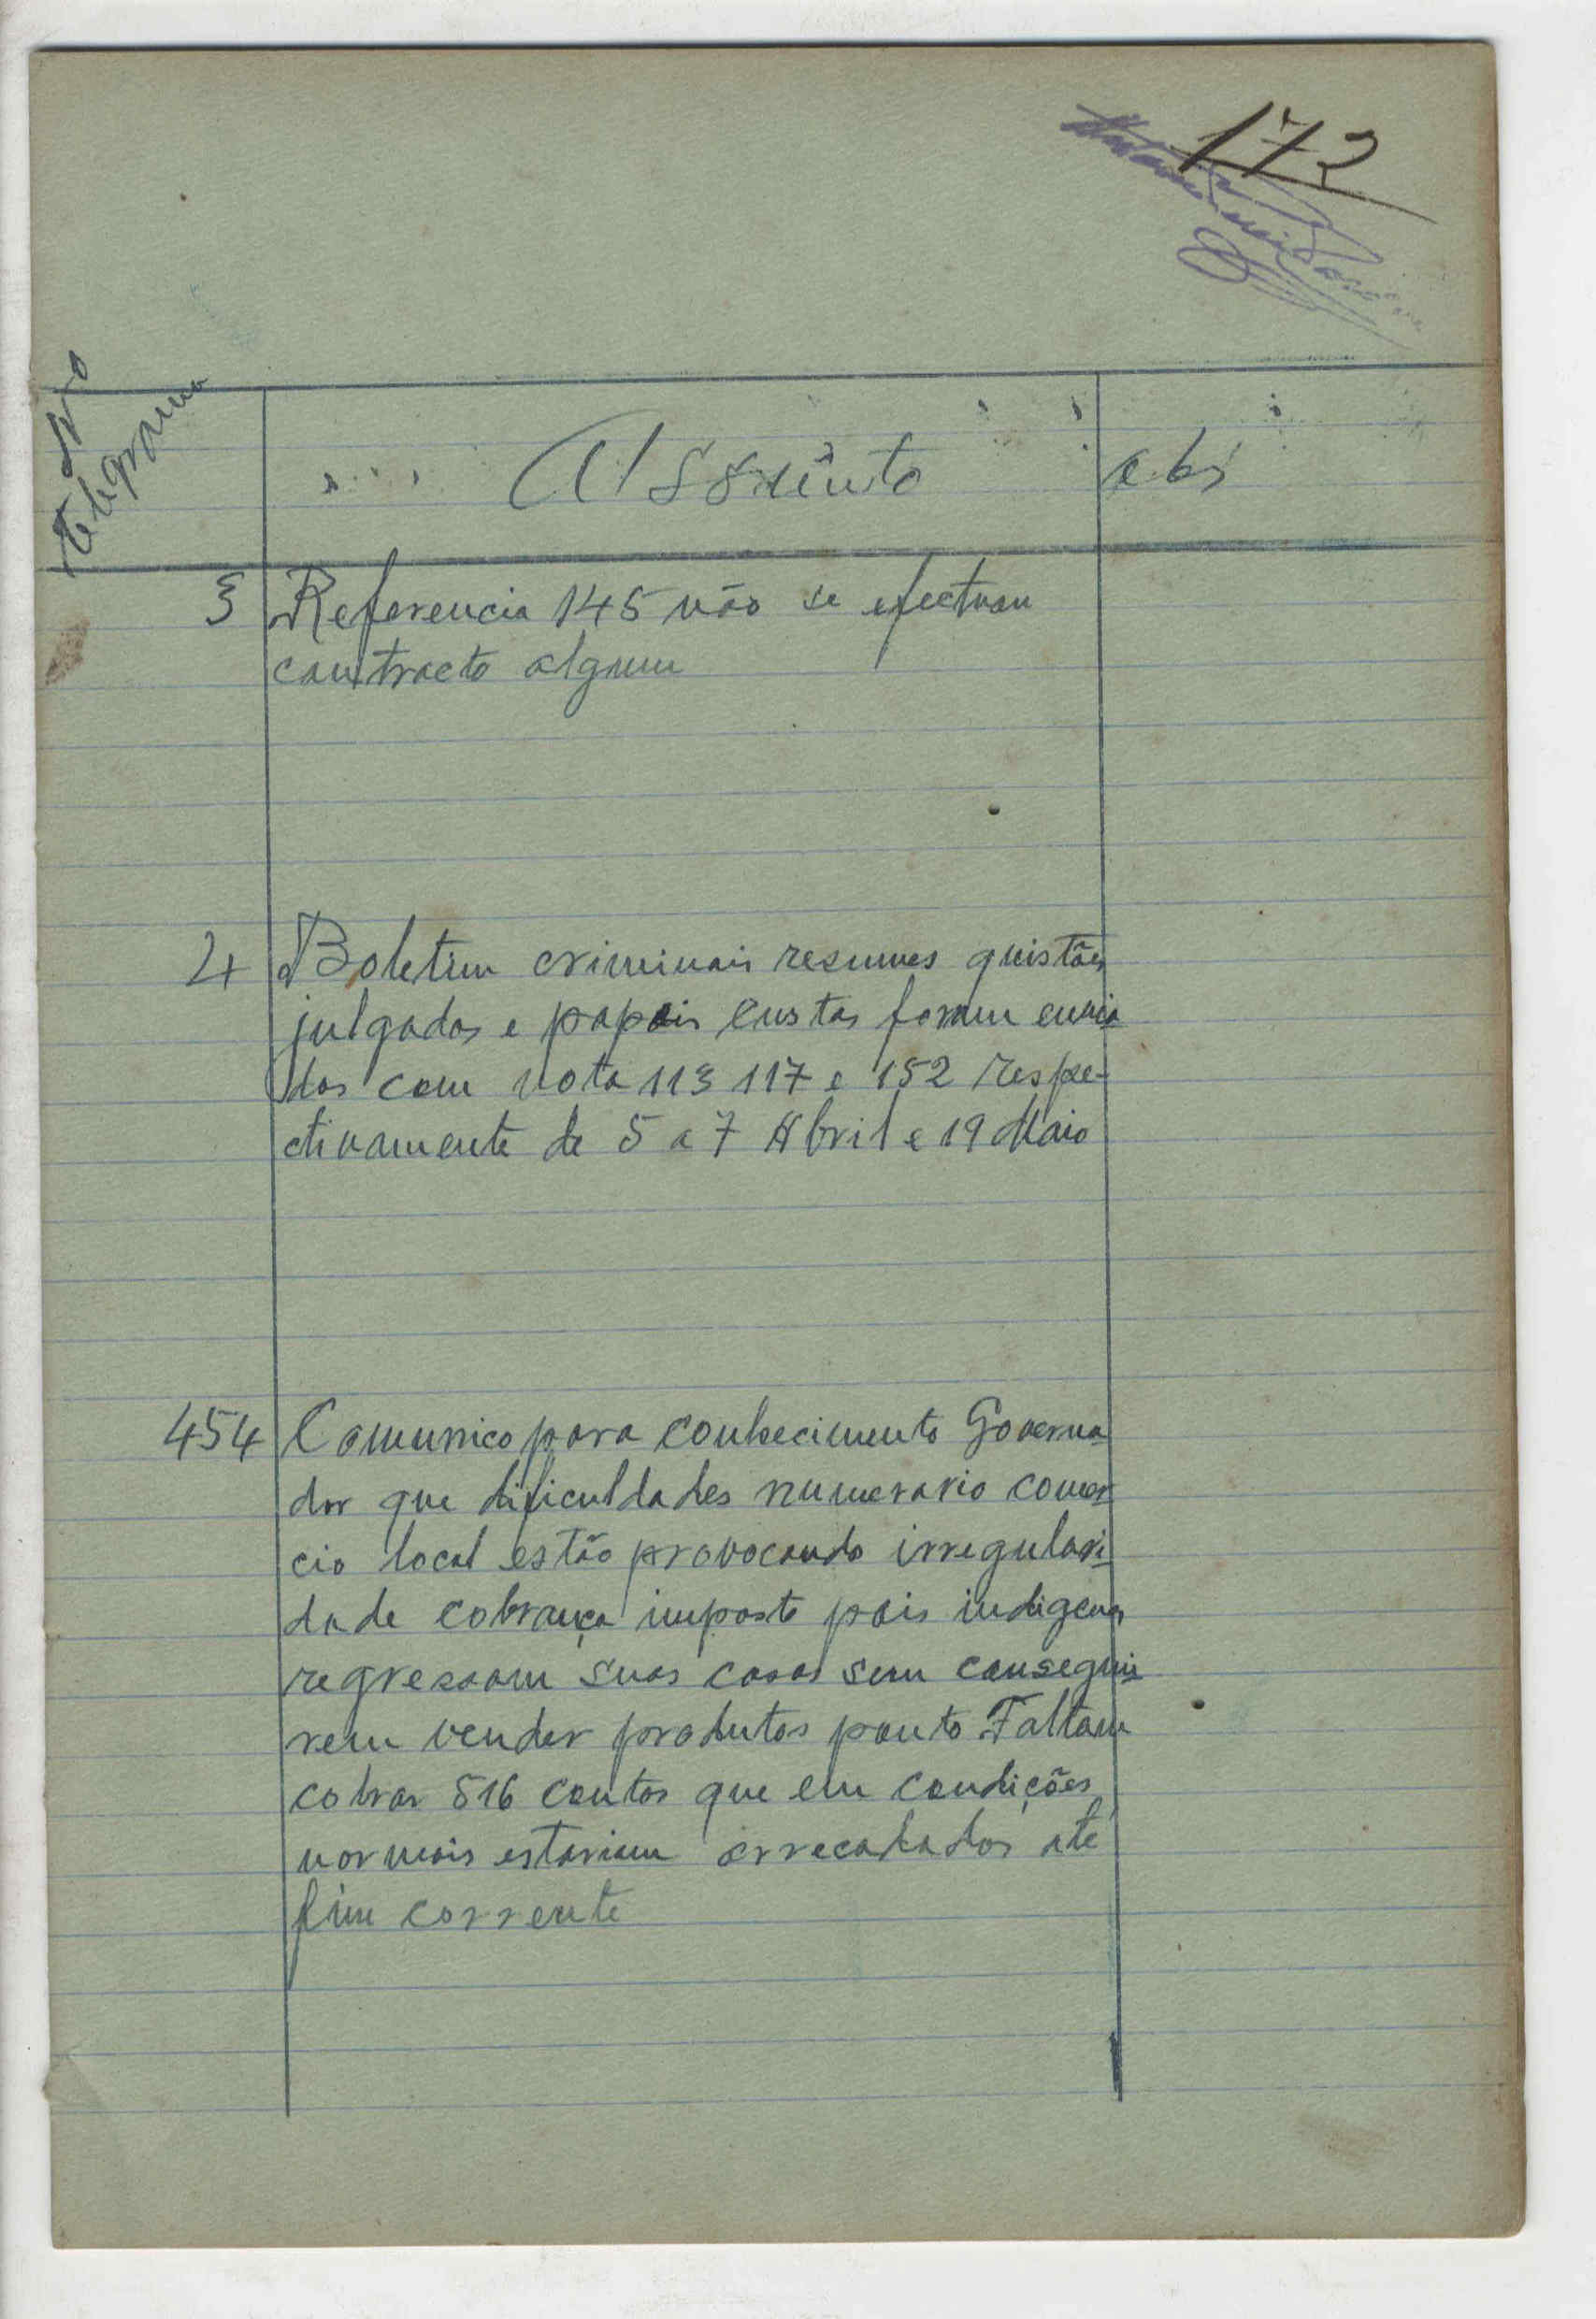 172
No
telegrama
Assunto
obs
3 Referencia 145 não se efectuou
contracto algum
4 Boletim criminais resumos quistões
julgados e papeis custas foram envia
dos com nota 113 117 e 152 respe-
ctivamente de 5 a 7 Abril e 19 Maio
454 Comunico para conhecimento Governa
dor que dificuldades numerario comer
cio local estão provocando irregulari
dade cobrança imposto pois indigenas
regressam suas casas sem consegui
rem vender produtos ponto Faltam
cobrar 516 contos que em condições
normais estariam arrecadados até
fim corrente